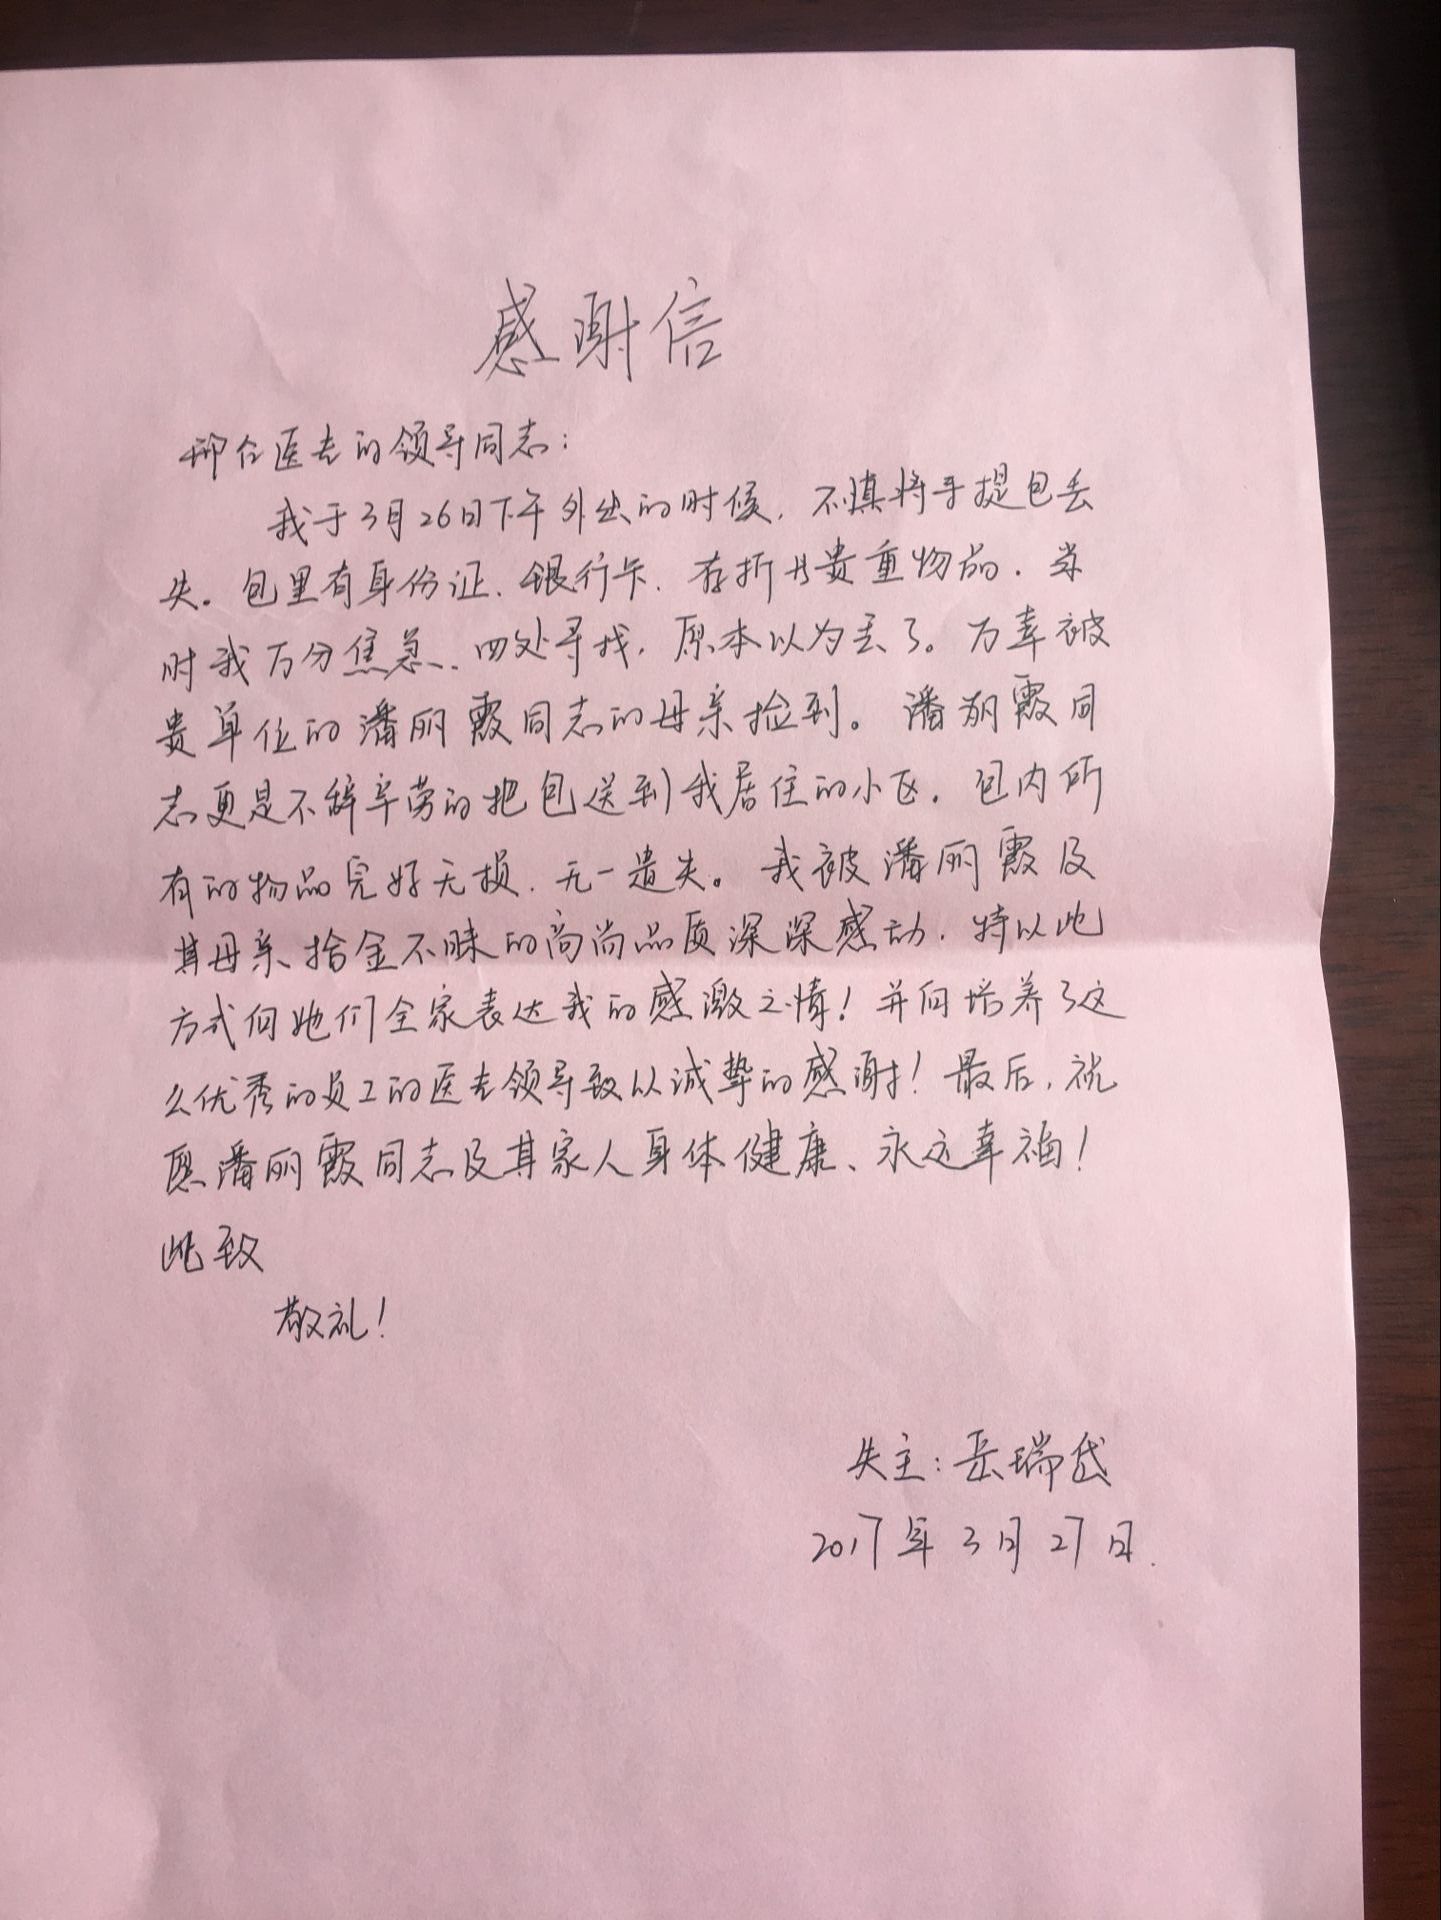 感谢信
邢台医专的领导同志：
我于3月26日下午外出的时候，不慎将手提包丢
失。包里有身份证、银行卡、存折共贵重物品，当
时我万分焦急、四处寻找，原本以为丢了。万幸被
贵单位的潘丽霞同志的母亲捡到。潘丽霞同
志更是不辞辛劳的把包送到我居住的小区，包内所
有的物品完好无损、无一遗失。我被潘丽霞及
其母亲拾金不昧的高尚品质深深感动，特以此
方式向她们全家表达我的感激之情！并向培养了这
么优秀的员工的医专领导致以诚挚的感谢！最后，祝
愿潘丽霞同志及其家人身体健康、永远幸福！
此致
敬礼！
失主：岳瑞岱
2017年3月27日.